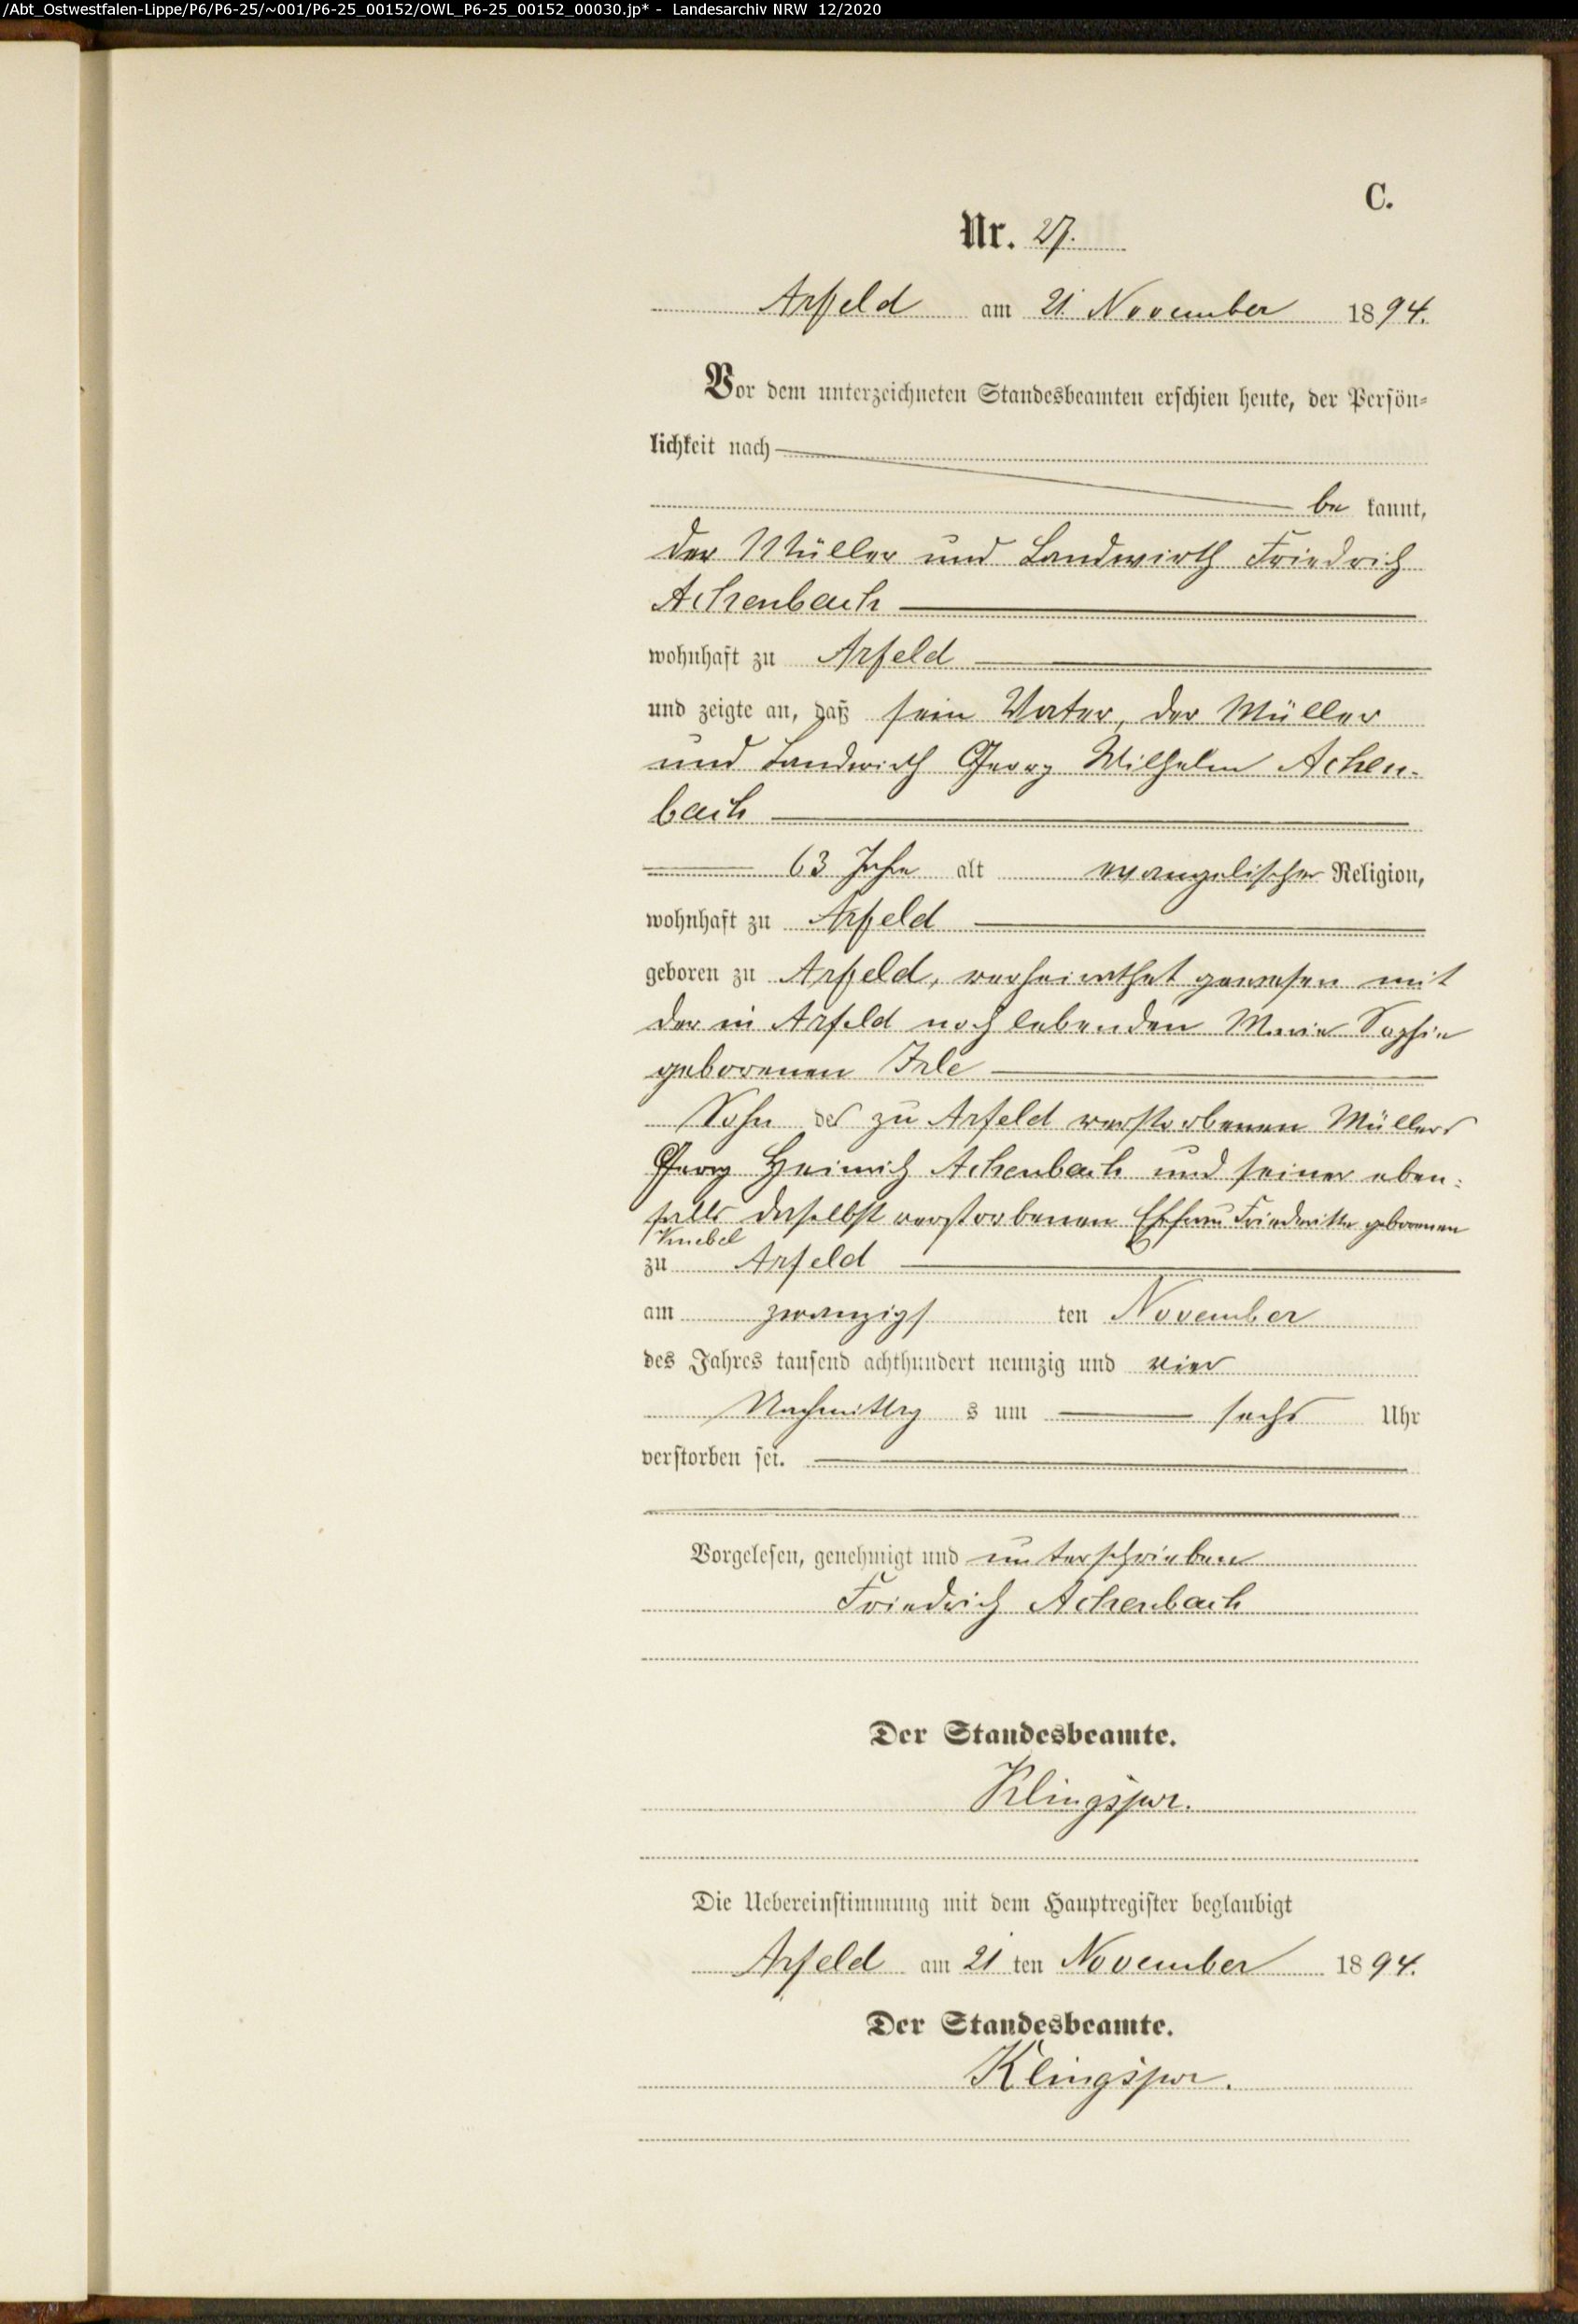 /Abt_Ostwestfalen-Lippe/P6/P6-25/~001/P6-25_00152/OWL_P6-25_00152_00030.jp* - Landesarchiv NRW 12/2020
C.
Nr. 27.
Arfeld am 21. November 1894.
Vor dem unterzeichneten Standesbeamten erschien heute, der Persön-
lichkeit nach
be kannt,
der Müller und Landwirth Friedrich
Achenbach
wohnhaft zu Arfeld
und zeigte an, daß sein Vater, der Müller
und Landwirth Georg Wilhelm Achen-
bach
63 Jahre alt evangelischer Religion,
wohnhaft zu Arfeld
geboren zu Arfeld, verheirathet gewesen mit
der in Arfeld noch lebenden Marie Sophie
geborenen Irle
Sohn des zu Arfeld verstorbenen Müllers
Georg Heinrich Achenbach und seiner eben-
falls daselbst verstorbenen Ehefrau Friederike geborenen
Knebel
zu Arfeld
am zwanzigs ten November
des Jahres tausend achthundert neunzig und vier
Nachmittag s um sechs Uhr
verstorben sei.
Vorgelesen, genehmigt und unterschrieben
Friedrich Achenbach
Der Standesbeamte.
Klingspor.
Die Uebereinstimmung mit dem Hauptregister beglaubigt
Arfeld am 21 ten November 1894.
Der Standesbeamte.
Klingspor.